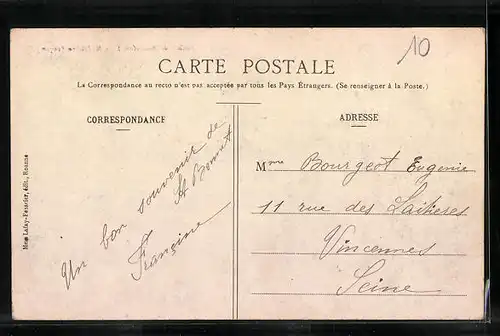 10
CARTE POSTALE
La Correspondance au recto n'est pas acceptée par tous les Pays Étrangers. (Se renseigner à la Poste.)
CORRESPONDANCE
ADRESSE
Un bon souvenir de
St Bonnet
Françine
Mme Bourgeot Eugenie
11 rue des Laitieres
Vincennes
Seine
Mme Lafay-Fessetier, édit., Roanne